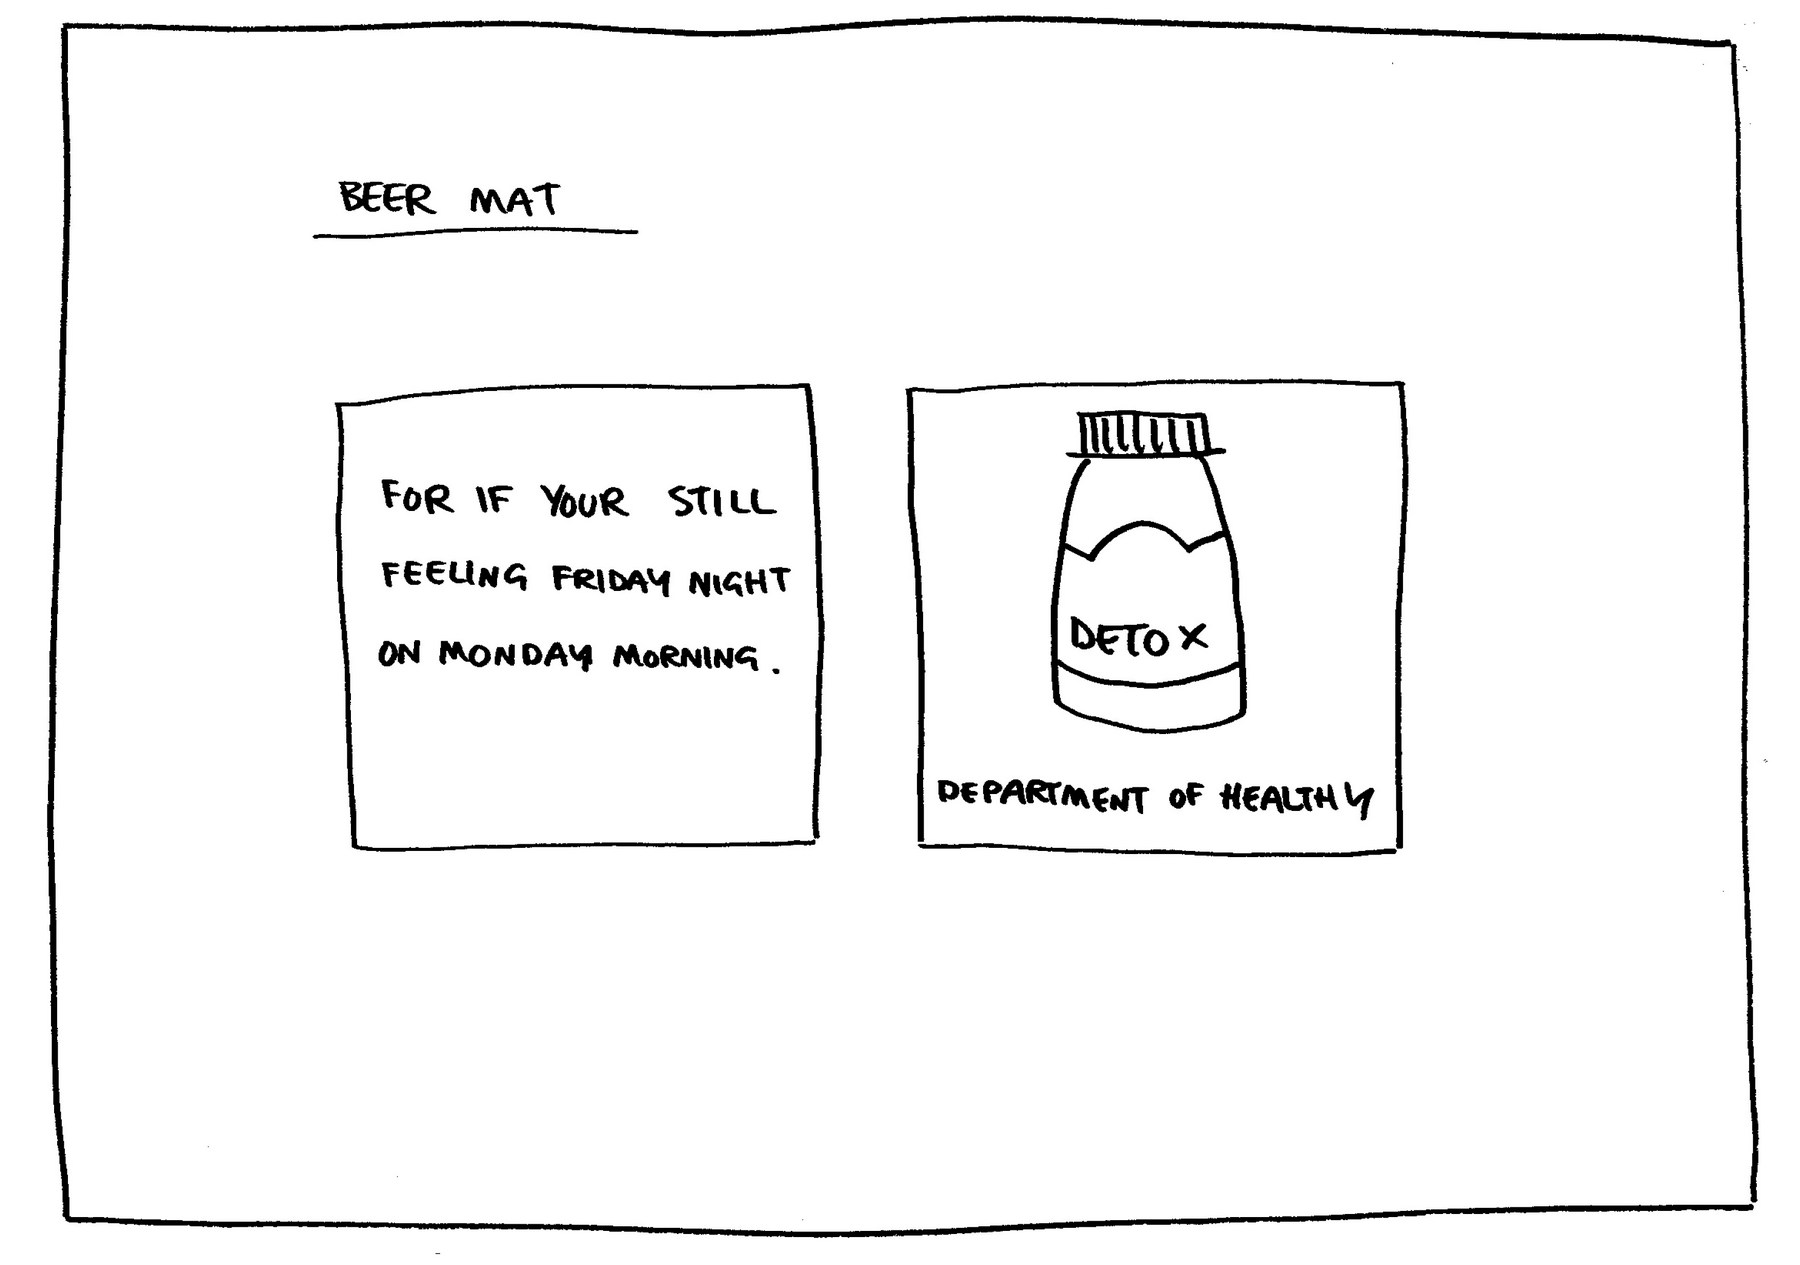 BEER MAT
FOR IF YOUR STILL
FEELING FRIDAY NIGHT
ON MONDAY MORNING.
DETOX
DEPARTMENT OF HEALTHY